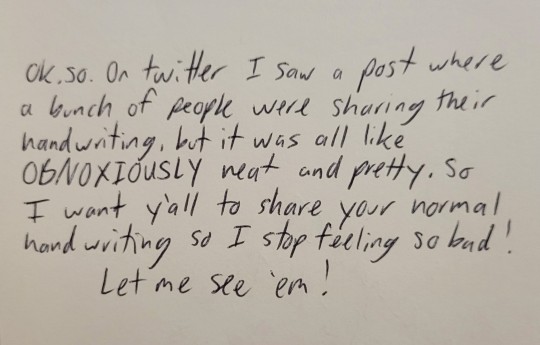 Ok. so. On twitter I saw a post where
a bunch of people were sharing their
handwriting, but it was all like
OBNOXIOUSLY neat and pretty. So
I want y'all to share your normal
handwriting so I stop feeling so bad!
Let me see 'em!